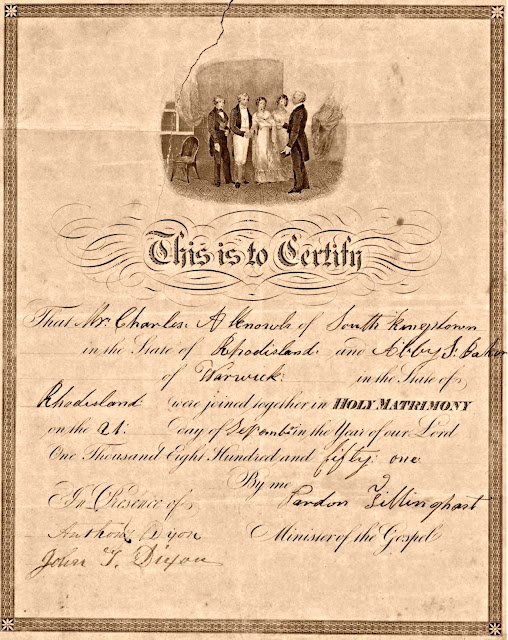 This is to Certify
That Mr. Charles A Knowls of South Kingstown
in the State of Rhodisland and Abby S. Baker
of Warwick in the State of
Rhodisland were joined together in HOLY MATRIMONY
on the 21 day of in the Year of our Lord
One Thousand Eight Hundred and fifty one
By me
In Presence of Pardon Tillinghast
Anthony Dixon Minister of the Gospel
John T. Dixon